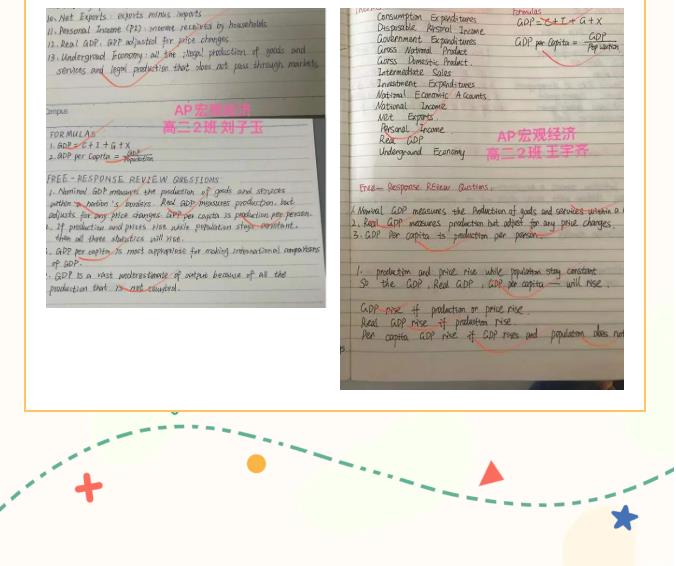 10. Net Exports: exports minus imports
11. Personal Income (PI): income received by households
12. Real GDP: GDP adjusted for price changes
13. Underground Economy: all the illegal production of goods and
services and legal production that does not pass through markets
AP宏观经济
高二2班 刘子玉
FORMULAS
1. GDP = C + I + G + X
2. GDP per Capita = GDP
Population
FREE-RESPONSE REVIEW QUESTIONS
1. Nominal GDP measures the production of goods and services
within a nation's borders. Real GDP measures production, but
adjusts for any price changes. GDP per capita is production per person.
If production and prices rise while population stays constant,
then all three statistics will rise.
GDP per capita is most appropriate for making international comparisons
of GDP.
GDP is a vast underestimate of output because of all the
production that is not counted.
Consumption Expenditures
Disposable Personal Income
Government Expenditures
Gross National Product
Gorss Domestic Product.
Intermediate Sales
Investment Expenditures
National Economic Accounts
National Income
Net Exports
Personal Income
Real GDP
Underground Economy
Formulas
GDP = C + I + G + X
GDP per Capita = GDP
Population
AP宏观经济
高二2班 王宇齐
Free- Response REview Qustions.
1. Nominal GDP measures the Production of goods and services within a
2. Real GDP measures production but adjust for any price changes.
3. GDP Per capita is production per person.
1. production and price rise while population stay constant
So the GDP, Real GDP, GDP per capita — will rise.
GDP rise if production or price rise.
Real GDP rise if production rise.
Per capita GDP rise if GDP rises and population does not